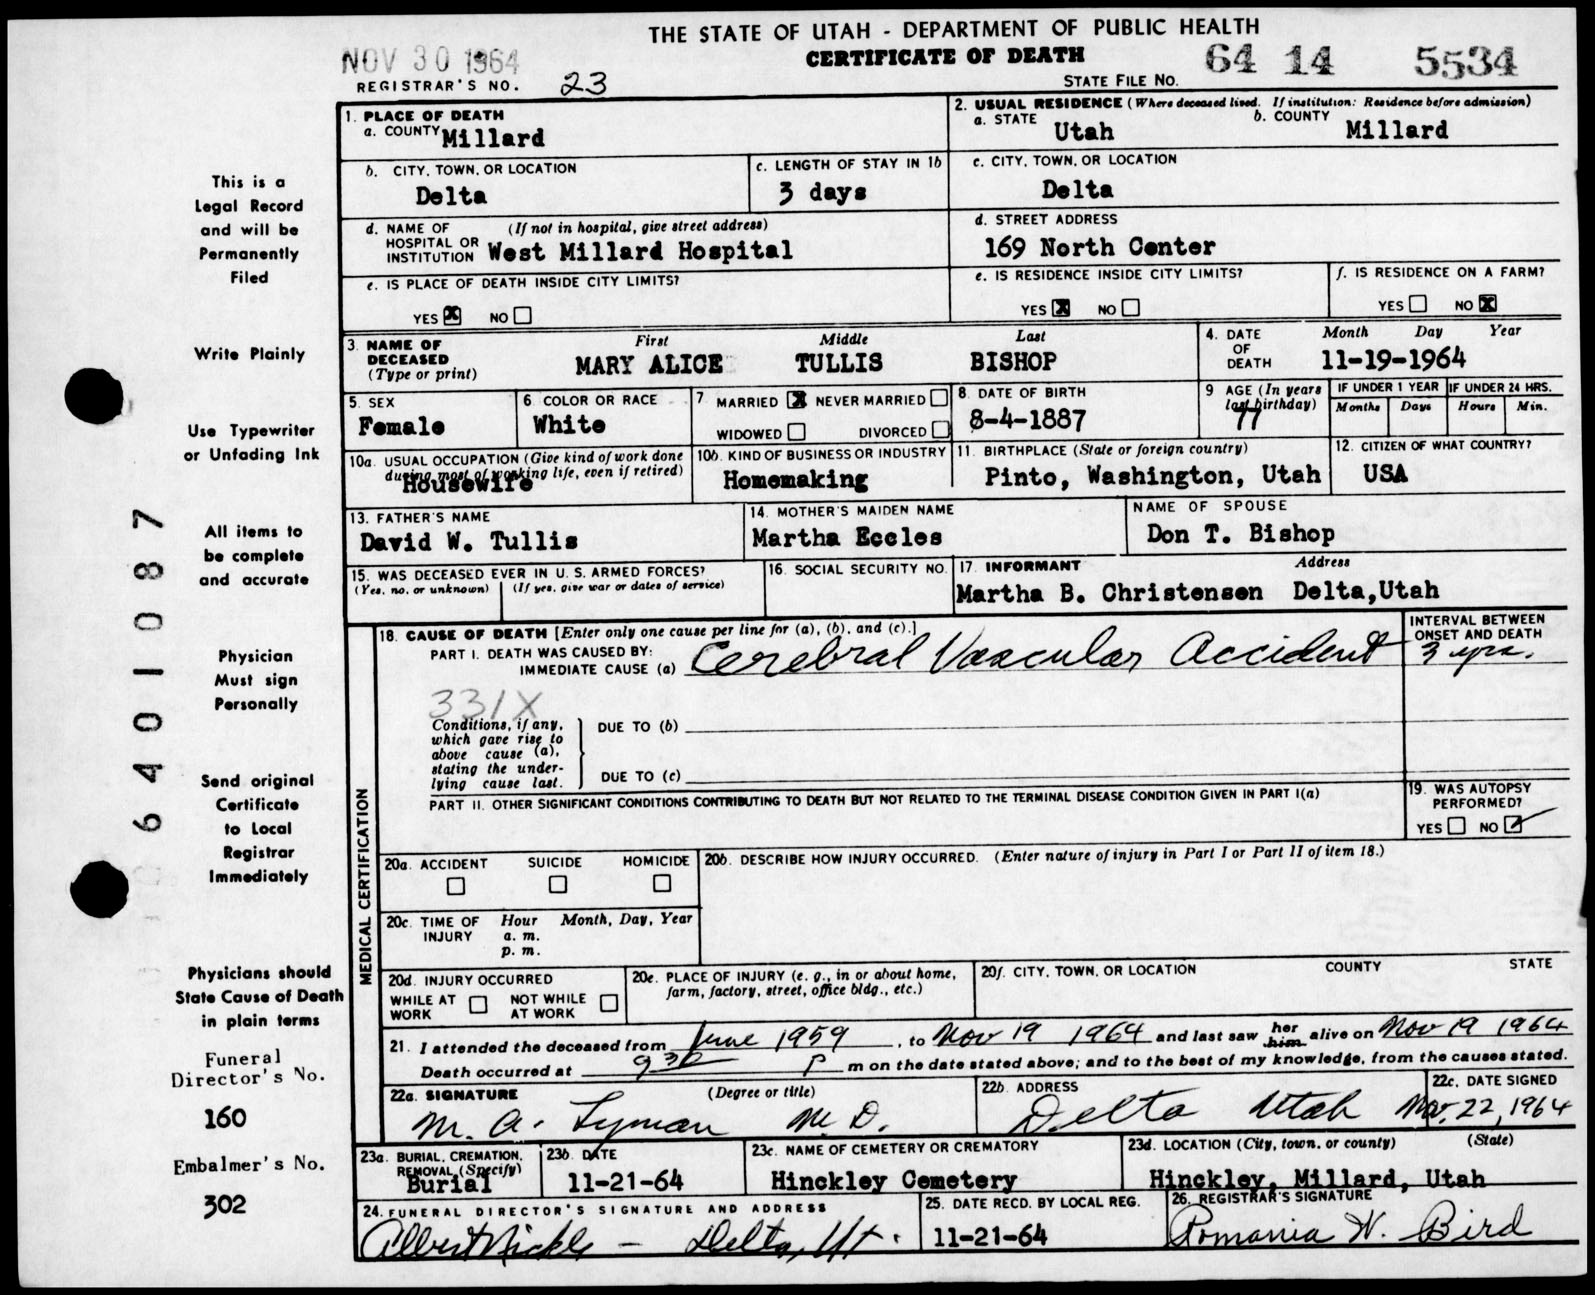 THE STATE OF UTAH - DEPARTMENT OF PUBLIC HEALTH
CERTIFICATE OF DEATH
NOV 30 1964
REGISTRAR'S NO. 23
STATE FILE NO. 64 14 5534
1. PLACE OF DEATH
a. COUNTY Millard
2. USUAL RESIDENCE (Where deceased lived. If institution: Residence before admission)
a. STATE Utah b. COUNTY Millard
b. CITY, TOWN, OR LOCATION Delta
c. LENGTH OF STAY IN 1b 3 days
c. CITY, TOWN, OR LOCATION Delta
d. NAME OF HOSPITAL OR INSTITUTION (If not in hospital, give street address) West Millard Hospital
d. STREET ADDRESS 169 North Center
e. IS PLACE OF DEATH INSIDE CITY LIMITS?
YES X NO
e. IS RESIDENCE INSIDE CITY LIMITS?
YES X NO
f. IS RESIDENCE ON A FARM?
YES NO X
3. NAME OF DECEASED (Type or print)
First Middle Last
MARY ALICE TULLIS BISHOP
4. DATE OF DEATH Month Day Year
11-19-1964
5. SEX Female
6. COLOR OR RACE White
7 MARRIED X NEVER MARRIED
WIDOWED DIVORCED
8. DATE OF BIRTH 8-4-1887
9 AGE (In years last birthday) 77
IF UNDER 1 YEAR Months Days
IF UNDER 24 HRS. Hours Min.
10a. USUAL OCCUPATION (Give kind of work done during most of working life, even if retired) Housewife
10b. KIND OF BUSINESS OR INDUSTRY Homemaking
11. BIRTHPLACE (State or foreign country) Pinto, Washington, Utah
12. CITIZEN OF WHAT COUNTRY? USA
13. FATHER'S NAME David W. Tullis
14. MOTHER'S MAIDEN NAME Martha Eccles
NAME OF SPOUSE Don T. Bishop
15. WAS DECEASED EVER IN U. S. ARMED FORCES?
(Yes, no, or unknown) (If yes, give war or dates of service)
16. SOCIAL SECURITY NO.
17. INFORMANT Address
Martha B. Christensen Delta,Utah
MEDICAL CERTIFICATION
18. CAUSE OF DEATH [Enter only one cause per line for (a), (b), and (c).]
PART I. DEATH WAS CAUSED BY:
IMMEDIATE CAUSE (a) Cerebral Vascular Accident
INTERVAL BETWEEN ONSET AND DEATH
3 yrs.
331X
Conditions, if any, which gave rise to above cause (a), stating the underlying cause last.
DUE TO (b)
DUE TO (c)
PART II. OTHER SIGNIFICANT CONDITIONS CONTRIBUTING TO DEATH BUT NOT RELATED TO THE TERMINAL DISEASE CONDITION GIVEN IN PART I(a)
19. WAS AUTOPSY PERFORMED?
YES NO
20a. ACCIDENT SUICIDE HOMICIDE
20b. DESCRIBE HOW INJURY OCCURRED. (Enter nature of injury in Part I or Part II of item 18.)
20c. TIME OF INJURY Hour Month, Day, Year
a. m.
p. m.
20d. INJURY OCCURRED
WHILE AT WORK NOT WHILE AT WORK
20e. PLACE OF INJURY (e. g., in or about home, farm, factory, street, office bldg., etc.)
20f. CITY, TOWN, OR LOCATION COUNTY STATE
21. I attended the deceased from June 1959, to Nov 19 1964 and last saw her him alive on Nov 19 1964
Death occurred at 9 30 P m on the date stated above; and to the best of my knowledge, from the causes stated.
22a. SIGNATURE (Degree or title)
M. A. Lyman M. D.
22b. ADDRESS Delta Utah
22c. DATE SIGNED Nov. 22, 1964
23a. BURIAL, CREMATION, REMOVAL (Specify) Burial
23b. DATE 11-21-64
23c. NAME OF CEMETERY OR CREMATORY Hinckley Cemetery
23d. LOCATION (City, town, or county) (State)
Hinckley, Millard, Utah
24. FUNERAL DIRECTOR'S SIGNATURE AND ADDRESS
Albert Nickle - Delta, Ut.
25. DATE RECD. BY LOCAL REG. 11-21-64
26. REGISTRAR'S SIGNATURE Romania N. Bird
This is a
Legal Record
and will be
Permanently
Filed
Write Plainly
Use Typewriter
or Unfading Ink
All items to
be complete
and accurate
Physician
Must sign
Personally
Send original
Certificate
to Local
Registrar
Immediately
Physicians should
State Cause of Death
in plain terms
Funeral
Director's No.
160
Embalmer's No.
302
6401087